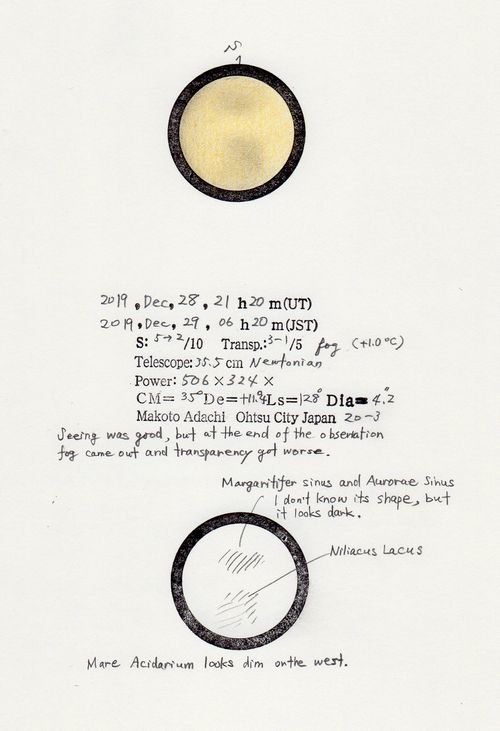 S
2019, Dec, 28, 21 h 20 m (UT)
2019, Dec, 29, 06 h 20 m (JST)
S: 5→2/10 Transp.: 3-1/5 fog (+1.0°C)
Telescope: 35.5 cm Newtonian
Power: 506 × 324 ×
CM= 35° De= +11.9° Ls= 128° Dia= 4".2
Makoto Adachi Ohtsu City Japan 20-3
Seeing was good, but at the end of the obseration
fog came out and transparency got worse.
Margaritifer sinus and Aurorae Sinus
I don't know its shape, but
it looks dark.
Niliacus Lacus
Mare Acidarium looks dim onthe west.